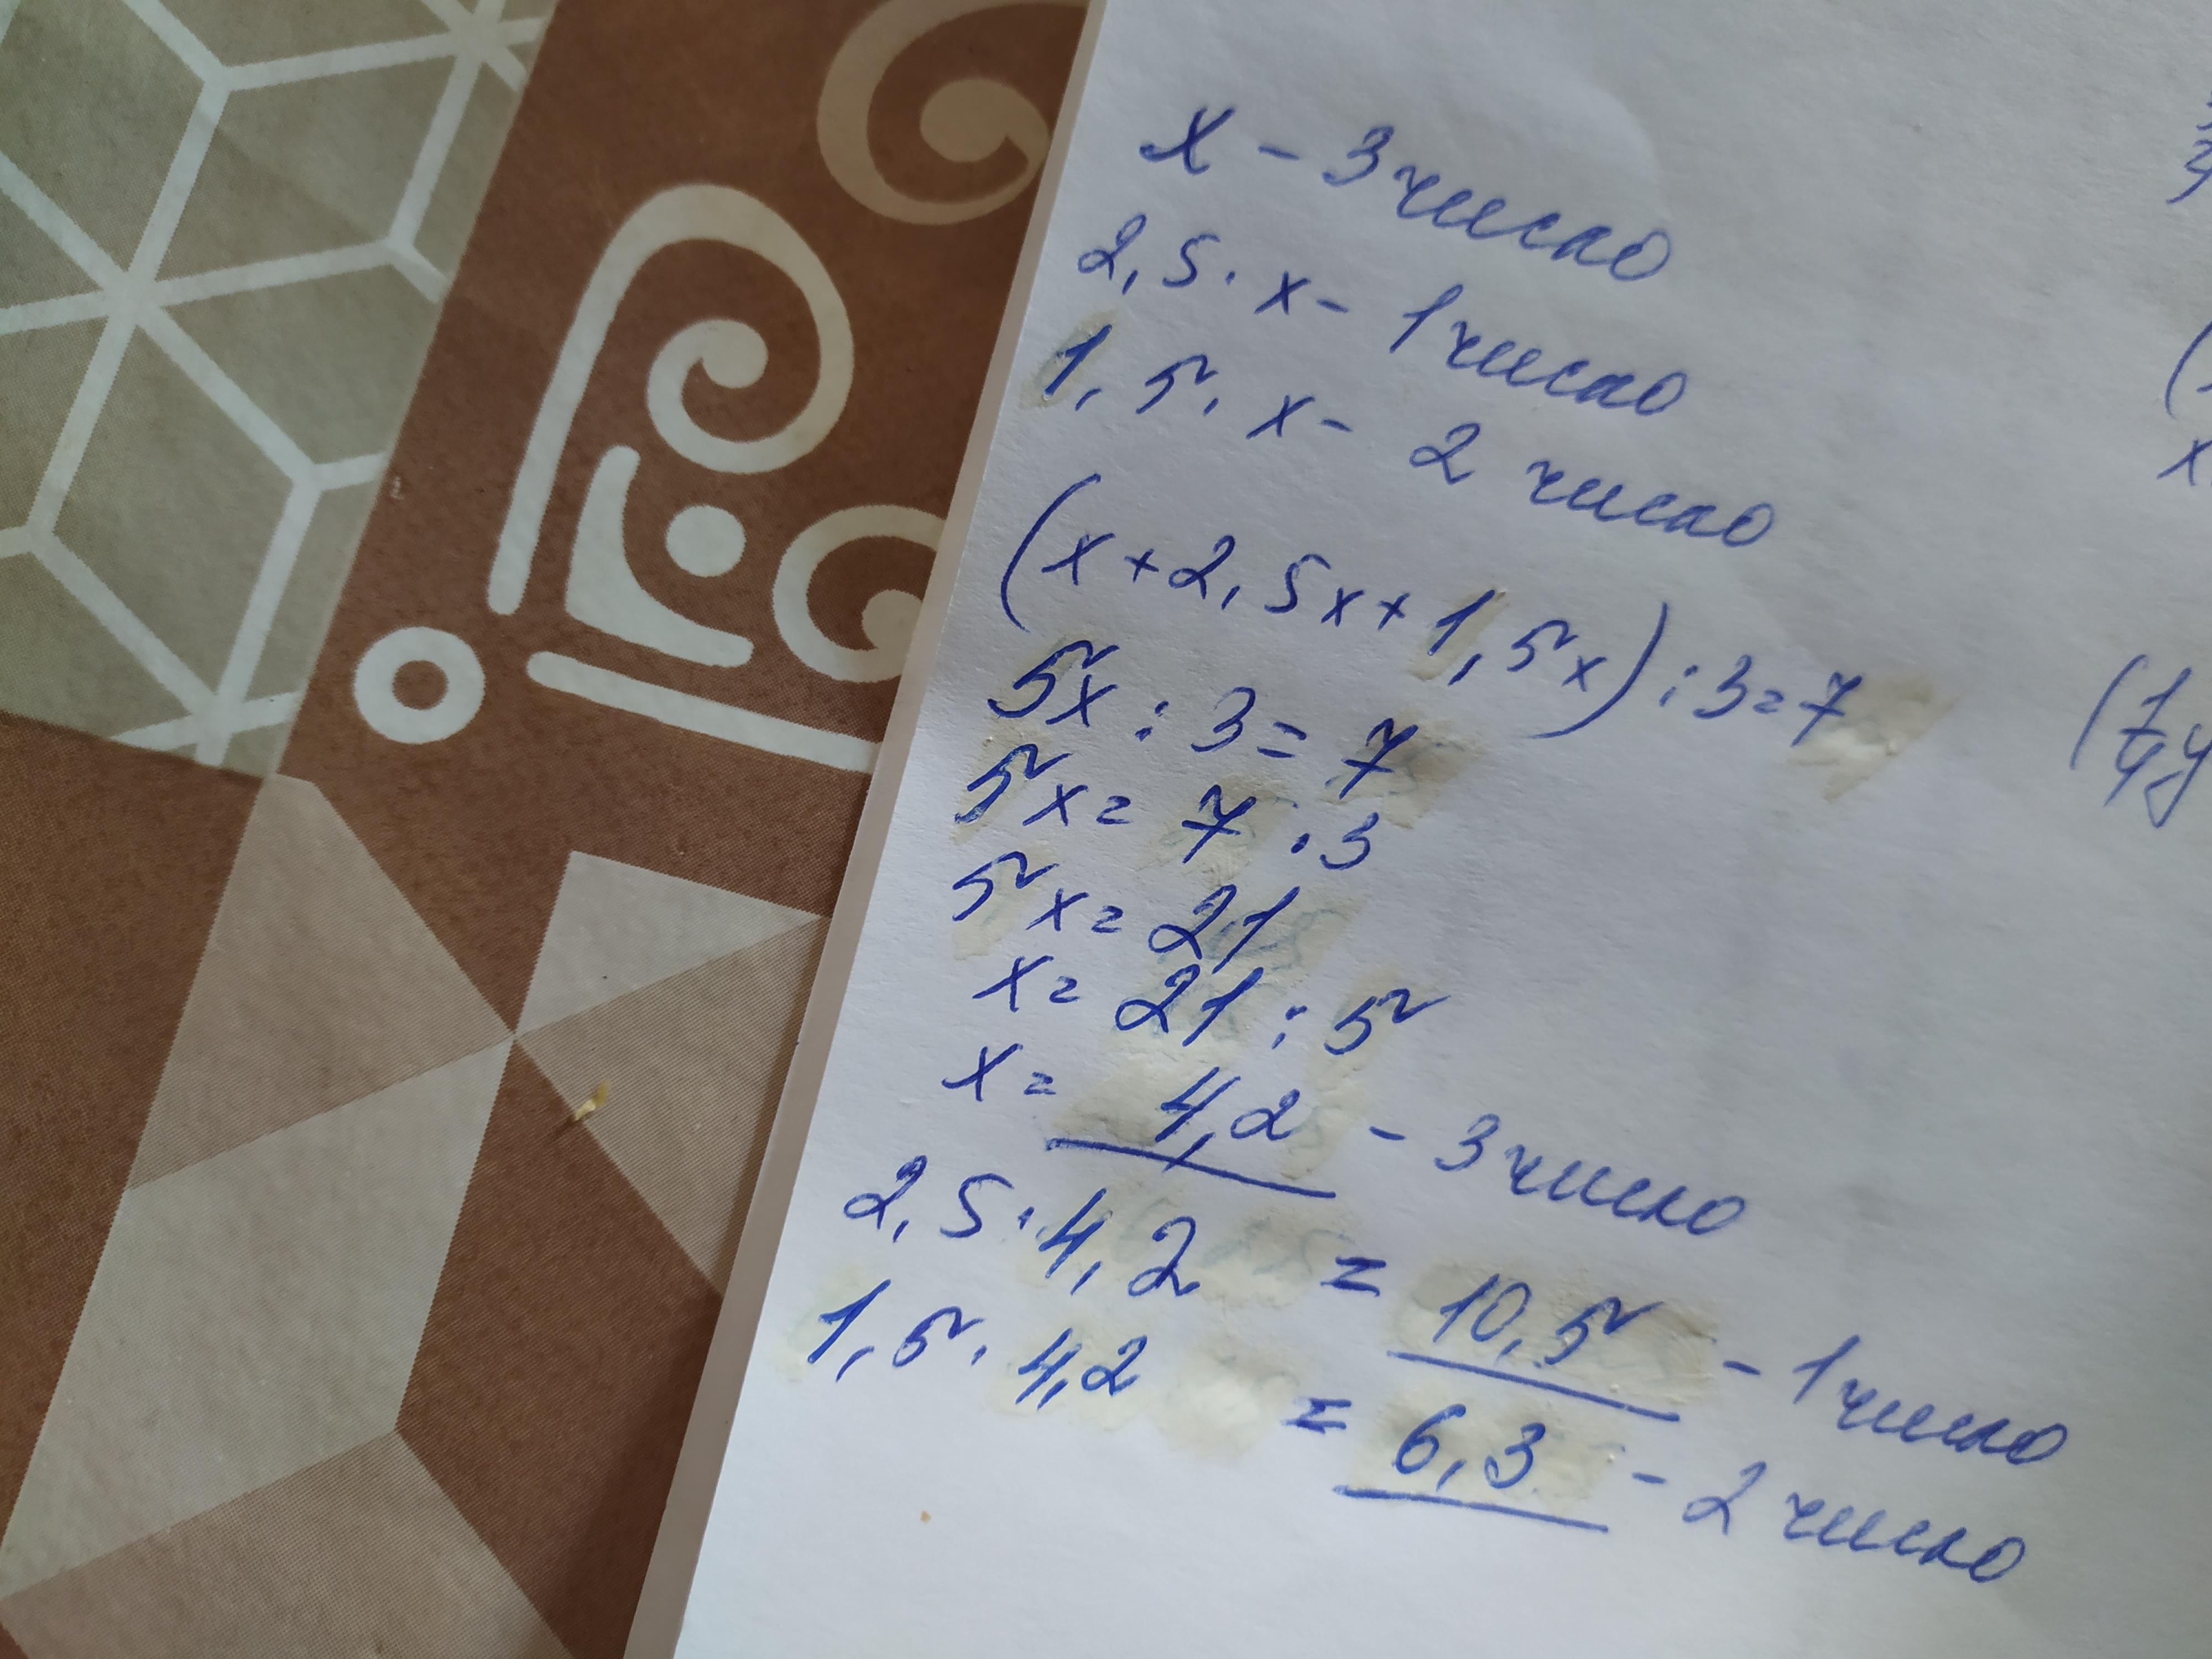 x - 3 число
2,5 · x - 1 число
1,5 · x - 2 число
(x + 2,5x + 1,5x) : 3 = 7
5x : 3 = 7
5x = 7 · 3
5x = 21
x = 21 : 5
x = 4,2 - 3 число
2,5 · 4,2 = 10,5 - 1 число
1,5 · 4,2 = 6,3 - 2 число
(
x
(1/4 y